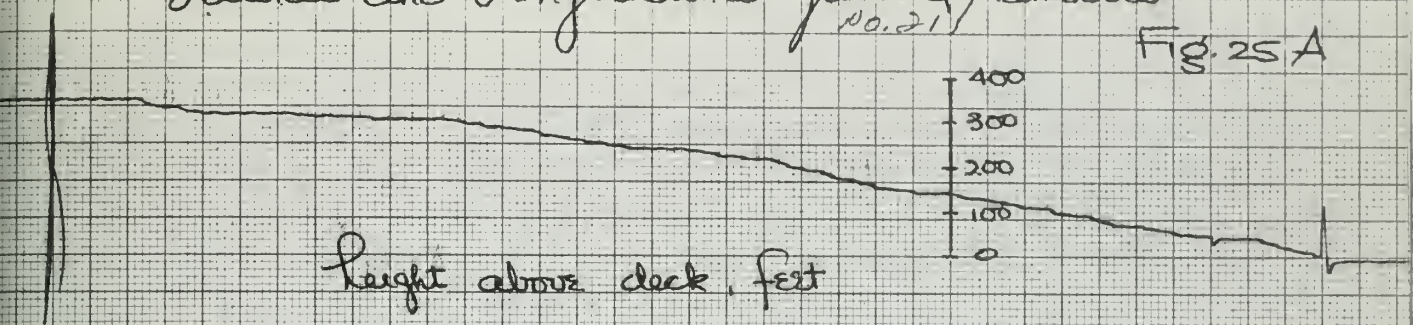 No. 21
Fig. 25 A
400
300
200
100
0
height above deck, feet